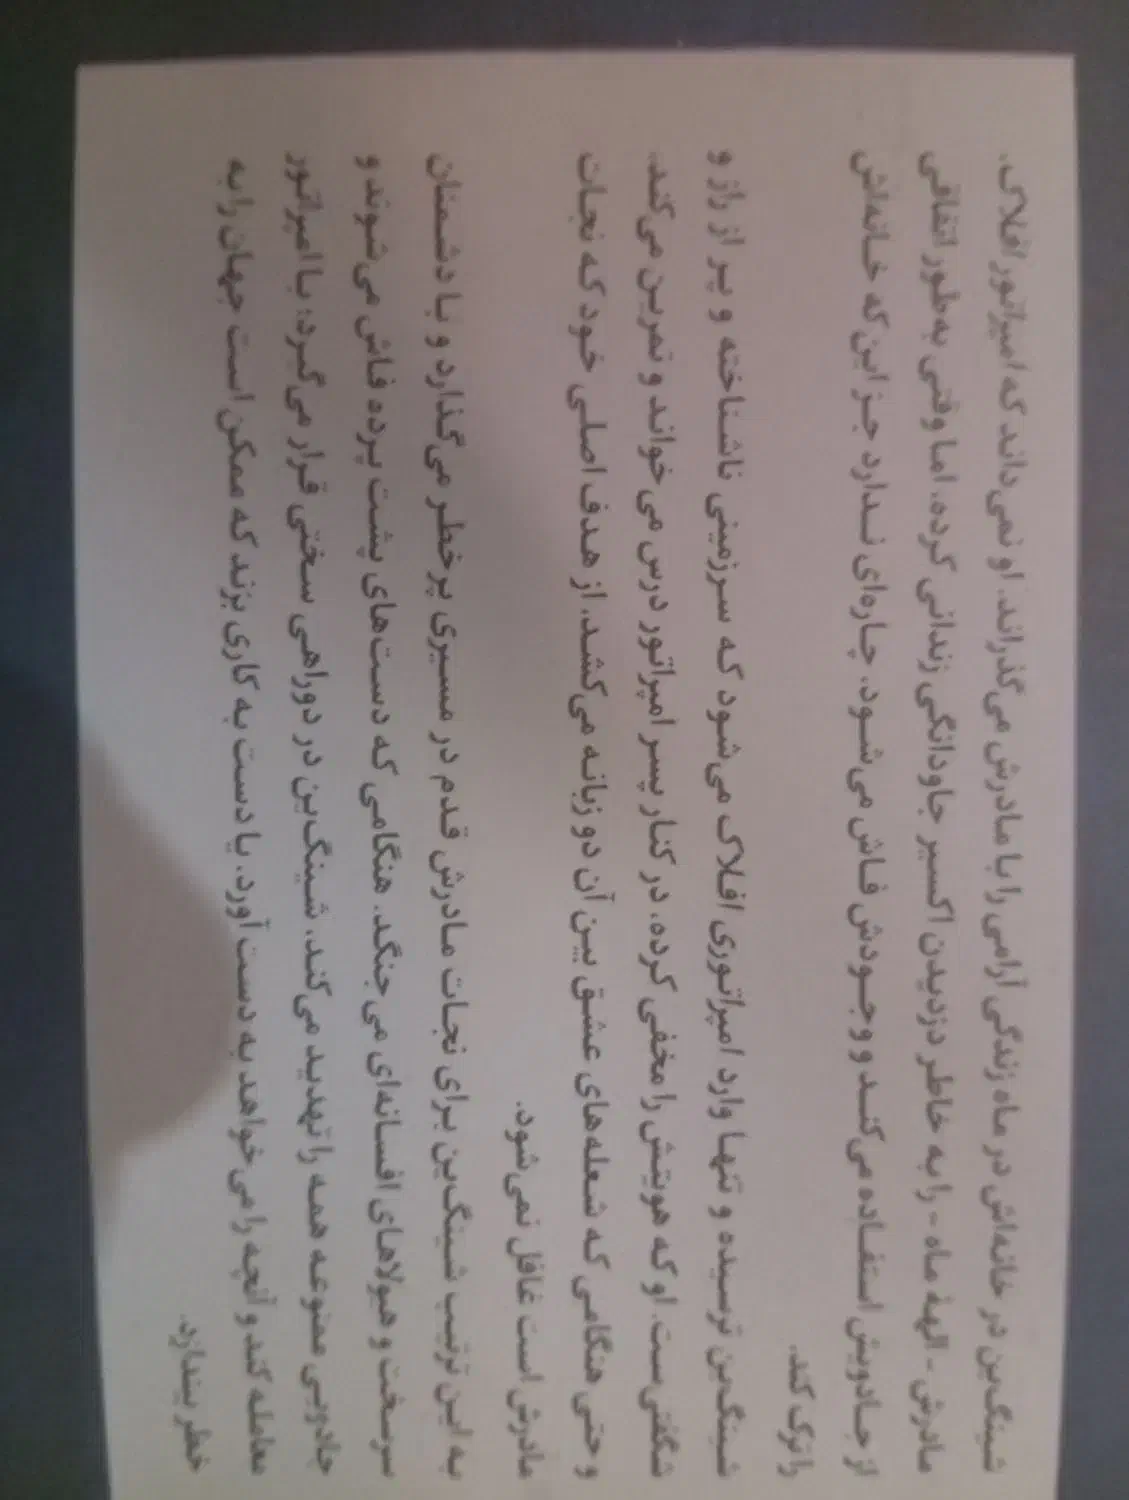 شینگ‌ین در خانه‌اش در ماه زندگی آرامی را با مادرش می‌گذراند. او نمی‌داند که امپراتور افلاک،
مادرش - الههٔ ماه - را به خاطر دزدیدن اکسیر جاودانگی زندانی کرده، اما وقتی به‌طور اتفاقی
از جادویش استفاده می‌کند و وجودش فاش می‌شود، چاره‌ای ندارد جز این‌که خانه‌اش
را ترک کند.
شینگ‌ین ترسیده و تنها وارد امپراتوری افلاک می‌شود که سرزمینی ناشناخته و پر از راز و
شگفتی‌ست. او که هویتش را مخفی کرده، در کنار پسر امپراتور درس می‌خواند و تمرین می‌کند.
و حتی هنگامی که شعله‌های عشق بین آن دو زبانه می‌کشد، از هدف اصلی خود که نجات
مادرش است غافل نمی‌شود.
به این ترتیب شینگ‌ین برای نجات مادرش قدم در مسیری پرخطر می‌گذارد و با دشمنان
سرسخت و هیولاهای افسانه‌ای می‌جنگد. هنگامی که دست‌های پشت پرده فاش می‌شوند و
جادویی ممنوعه همه را تهدید می‌کند، شینگ‌ین در دوراهی سختی قرار می‌گیرد؛ با امپراتور
معامله کند و آنچه را می‌خواهد به دست آورد، یا دست به کاری بزند که ممکن است جهان را به
خطر بیندازد.